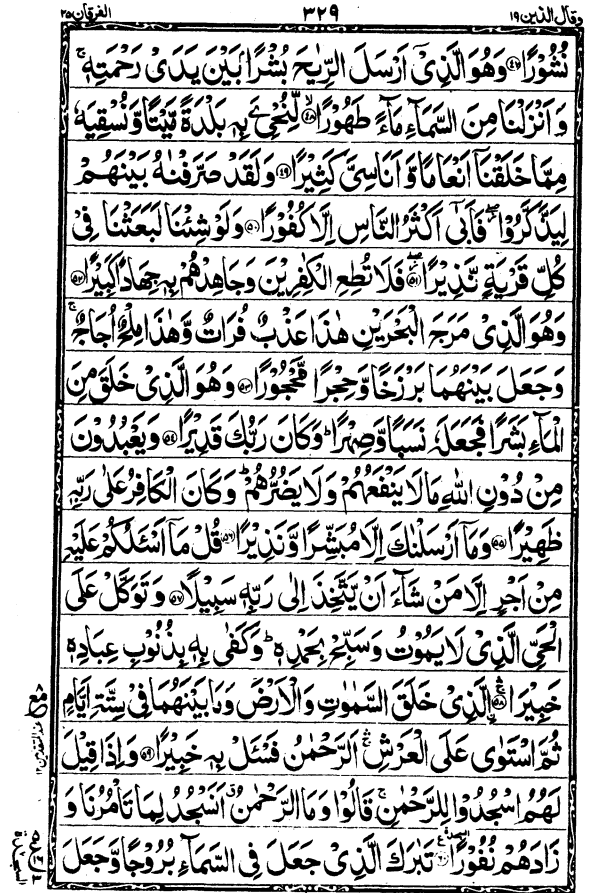 وقال الذین ١٩ ٣٢٩ الفرقان ٢٥
نُشُوۡرًا ﴿۴۷﴾ وَهُوَ الَّذِىۡۤ اَرۡسَلَ الرِّيٰحَ بُشۡرًۢا بَيۡنَ يَدَىۡ رَحۡمَتِهٖ‌ۚ
وَاَنۡزَلۡنَا مِنَ السَّمَآءِ مَآءً طَهُوۡرًا ۙ‏﴿۴۸﴾ لِّـنُحْیَِۧ بِهٖ بَلۡدَةً مَّيۡتًا وَّنُسۡقِيَهٗ
مِمَّا خَلَقۡنَاۤ اَنۡعَامًا وَّاَنَاسِىَّ كَثِيۡرًا ﴿۴۹﴾ وَلَـقَدۡ صَرَّفۡنٰهُ بَيۡنَهُمۡ
لِيَذَّكَّرُوۡا ‌ۖ فَاَبٰٓى اَكۡثَرُ النَّاسِ اِلَّا كُفُوۡرًا ﴿۵۰﴾ وَلَوۡ شِئۡنَا لَبَـعَثۡنَا فِىۡ
كُلِّ قَرۡيَةٍ نَّذِيۡرًا ‌ۖ ﴿۵۱﴾ فَلَا تُطِعِ الۡكٰفِرِيۡنَ وَجَاهِدۡهُمۡ بِهٖ جِهَادًا كَبِيۡرًا ﴿۵۲﴾
وَهُوَ الَّذِىۡ مَرَجَ الۡبَحۡرَيۡنِ هٰذَا عَذۡبٌ فُرَاتٌ وَّهٰذَا مِلۡحٌ اُجَاجٌ‌ ۚ
وَجَعَلَ بَيۡنَهُمَا بَرۡزَخًا وَّحِجۡرًا مَّحۡجُوۡرًا ﴿۵۳﴾ وَهُوَ الَّذِىۡ خَلَقَ مِنَ
الۡمَآءِ بَشَرًا فَجَعَلَهٗ نَسَبًا وَّصِهۡرًا‌ ؕ وَكَانَ رَبُّكَ قَدِيۡرًا ﴿۵۴﴾ وَيَعۡبُدُوۡنَ
مِنۡ دُوۡنِ اللّٰهِ مَا لَا يَنۡفَعُهُمۡ وَلَا يَضُرُّهُمۡ‌ؕ وَكَانَ الۡـكَافِرُ عَلٰى رَبِّهٖ
ظَهِيۡرًا ﴿۵۵﴾ وَمَاۤ اَرۡسَلۡنٰكَ اِلَّا مُبَشِّرًا وَّنَذِيۡرًا ﴿۵۶﴾ قُلۡ مَاۤ اَسۡـئَلُكُمۡ عَلَيۡهِ
مِنۡ اَجۡرٍ اِلَّا مَنۡ شَآءَ اَنۡ يَّتَّخِذَ اِلٰى رَبِّهٖ سَبِيۡلًا ﴿۵۷﴾ وَتَوَكَّلۡ عَلَى
الۡحَـىِّ الَّذِىۡ لَا يَمُوۡتُ وَسَبِّحۡ بِحَمۡدِهٖ‌ ؕ وَكَفٰى بِهٖ بِذُنُوۡبِ عِبَادِهٖ
خَبِيۡرًا ‌ۛۚ ﴿۵۸﴾ اۨلَّذِىۡ خَلَقَ السَّمٰوٰتِ وَالۡاَرۡضَ وَمَا بَيۡنَهُمَا فِىۡ سِتَّةِ اَيَّامٍ
ثُمَّ اسۡتَوٰى عَلَى الۡعَرۡشِ ‌ۛۚ اَلرَّحۡمٰنُ فَسۡـئَلۡ بِهٖ خَبِيۡرًا ﴿۵۹﴾ وَاِذَا قِيۡلَ
لَهُمُ اسۡجُدُوۡا لِلرَّحۡمٰنِ‌ۚ قَالُوۡا وَمَا الرَّحۡمٰنُ اَنَسۡجُدُ لِمَا تَاۡمُرُنَا وَ
زَادَهُمۡ نُفُوۡرًا ﴿۶۰﴾ تَبٰرَكَ الَّذِىۡ جَعَلَ فِى السَّمَآءِ بُرُوۡجًا وَّجَعَلَ